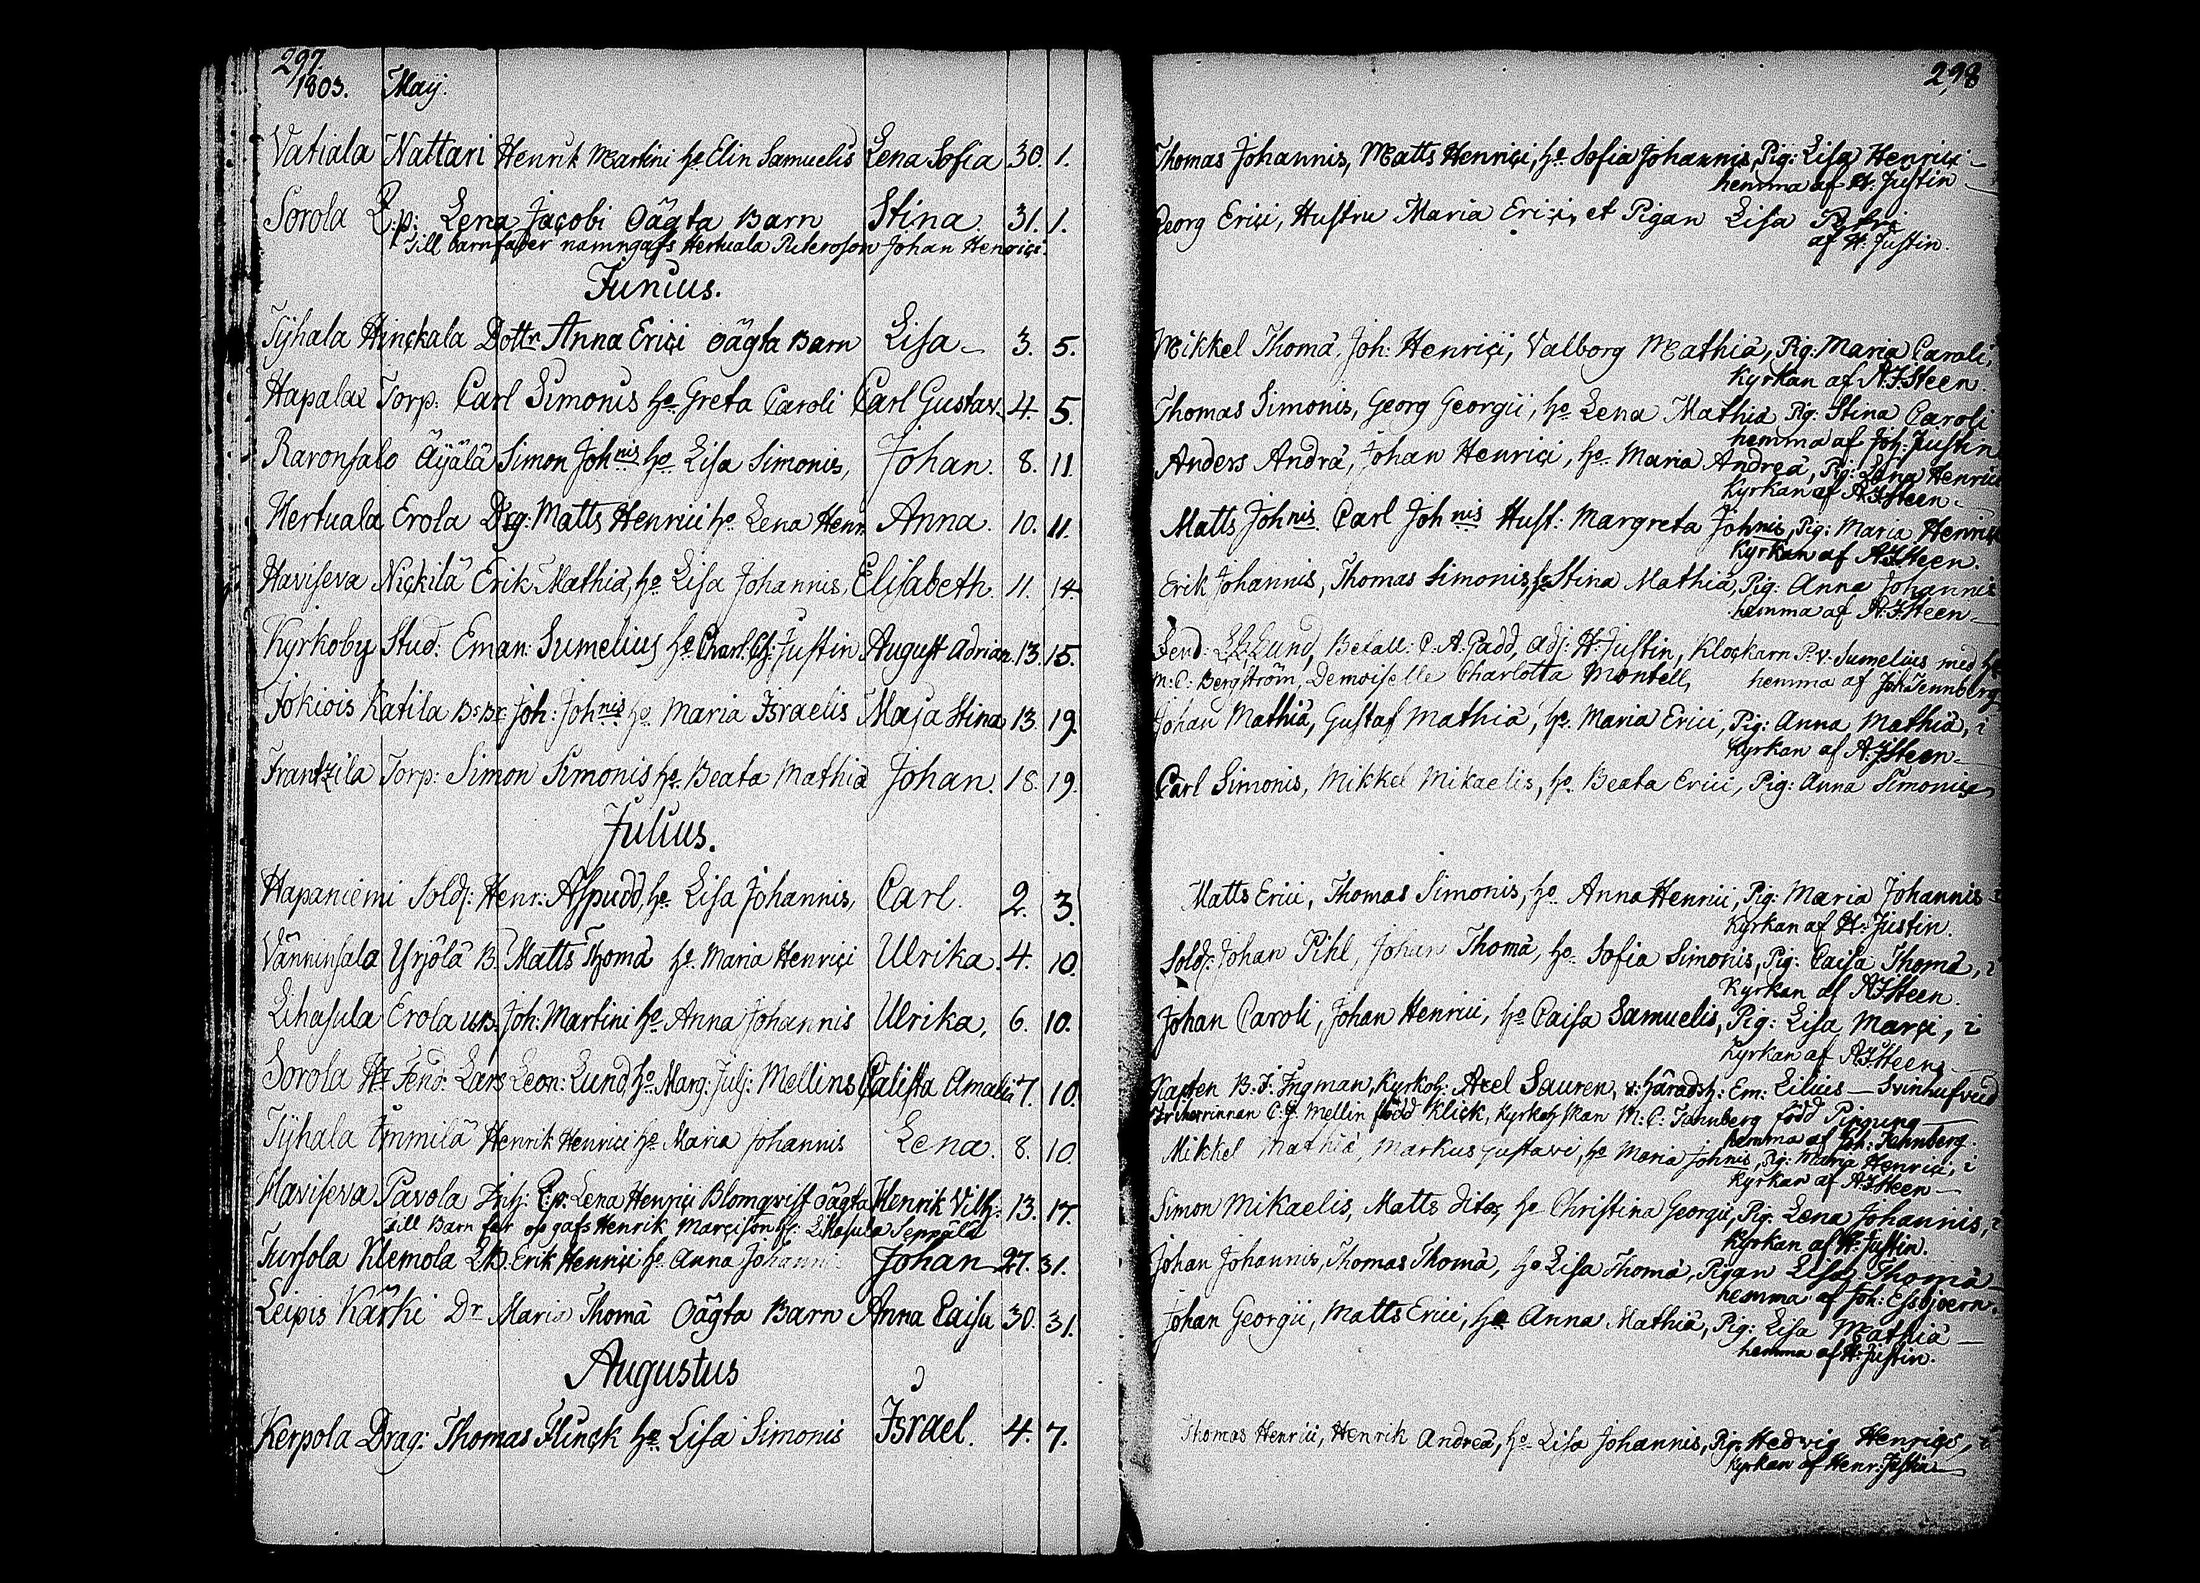 297.
1803. Maij.
Vatiala Nattari Henrik Martini ho. Elin Samuelis Lena Sofia 30. 1.
Sorola Lena Jacobi Oägta Barn Stina 31. 1.
Till barnfader namngafs Hertuala Johan Henrici.
Junius.
Tijhala Hinckala Dottr. Anna Erici oägta Barn Lisa 3. 5.
Hapalax Torp. Carl Simonis ho. Greta Caroli Carl Gustav. 4. 5.
Raronsalo Äijälä Simon Johnis ho. Lisa Simonis, Johan. 8. 11
Hertuala Erola Drg: Matts Henrici ho. Lena Henr. Anna. 10. 11.
Haviseva Nickilä Erik Mathiä, ho. Lisa Johannis, Elisabeth. 11. 14
Kyrkoby Stud. Eman: Sumelius ho. Charl. Justin August Adrian. 13. 15.
Jokiois Katila Joh: Johnis ho Maria Israelis Maja Stina 13. 19.
Frantzila Torp: Simon Simonis ho. Beata Mathiä Johan. 18. 19.
Julius.
Hapaniemi Sold: Henr: Aspudd, ho. Lisa Johannis, Carl. 2. 3.
Vänninsala Yrjölä B. Matts Thomä ho. Maria Henrici Ulrika. 4. 10.
Lihasula Erola Joh: Martini ho. Anna Johannis Ulrika, 6. 10.
Sorola Hr Fend: Lars Leon: Lund, ho. Marg: Julj: Mellins Calista Amalia 7. 10.
Tijhala Henrik Henrici ho. Maria Johannis Lena. 8. 10.
Haviseva Pavola Lena Henrici Blomqvist oägta Henrik Vilh: 13. 17.
till Barn far op gafs Henrik Lihasula Seppälä
Tursola Klemola Erik Henrici ho. Anna Johannis Johan 27. 31.
Leipis Kärki Dr. Maria Thomä Oägta Barn Anna Caisa 30. 31.
Augustus
Kerpola Drag: Thomas Flinck ho. Lisa Simonis Israel. 4. 7.
298
Thomas Johannis, Matts Henrici, ho. Sofia Johannis, Pig: Lisa Henrici
hemma af H. Justin
Georg Erici, Hustru Maria Erici, et Pigan Lisa Petri
af H: Justin.
Mikkel Thomä, Joh: Henrici, Valborg Mathiä, Pig: Maria Caroli,
Kyrkan af A.J.Steen
Thomas Simonis, Georg Georgii, ho. Lena Mathiä, Pig: Stina Caroli
hemma af Joh: Justin
Anders Andrä, Johan Henrici, ho. Maria Andreä, Pig: Lena Henrici
Kyrkan af A.J.Steen
Matts Johnis Carl Johnis Hust: Margreta Johnis, Pig: Maria Henrici
Kyrkan af A.J.Steen.
Erik Johannis, Thomas Simonis, ho Stina Mathiä, Pig: Anna Johannis
hemma af A.J.Steen
Fend: Lund, Befall: C. A. Gadd, adj: H. Justin, Klockarn Sumelius med ho
M: C: Bergström, Demoiselle Charlotta Montell, hemma af Joh Tennberg
Johan Mathiä, Gustaf Mathiä, ho. Maria Erici, Pig: Anna Mathiä, i
Kyrkan af A.J.Steen
Carl Simonis, Mikkel Mikaelis, ho. Beata Erici, Pig: Anna Simonis
Matts Erici, Thomas Simonis, ho. Anna Henrici, Pig: Maria Johannis i
Kyrkan af H: Justin.
Sold: Johan Pihl, Johan Thomä, ho. Sofia Simonis, Pig: Caisa Thomä, i
Kyrkan af A.J.Steen.
Johan Caroli, Johan Henrici, ho Caisa Samuelis, Pig: Lisa Marci, i
Kyrkan af A.J.Steen
B. J. Ingman, Kyrkoh: Axel Sauren, v: häradsh: Em: Lilius Svinhufvud
Mellin född Klick, M: C: född Pipping
hemma af Joh: Tahnberg.
Mikkel Mathiä, Markus Gustavi, ho Maria Johnis, Pig: Maria Henrici, i
Kyrkan af A.J.Steen
Simon Mikaelis, Matts dito, ho Christina Georgii, Pig. Lena Johannis, i
Kyrkan af H: Justin.
Johan Johannis, Thomas Thomä, ho Lisa Thomä, Pigan Lisa Thomä
hemma af Joh: Essbjoern.
Johan Georgii, Matts Erici, ho Anna Mathiä, Pig: Lisa Mathiä
hemma af H: Justin.
Thomas Henrici, Henrik Andreä, ho. Lisa Johannis, Pig. Hedvig Henrici, i
Kyrkan af Henr: Justin